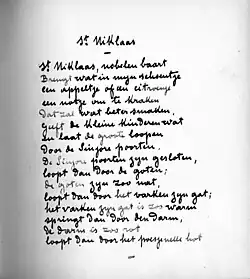 St Niklaas
St Niklaas, nobelen baart
Brengt wat in mijn schoentje
een appeltje of een citroentje
een notje om te kraken
Dat zal wat beter smaken.
Geeft de kleine kinderen wat
en laat de groote loopen
Door de Sinjore poorten.
De Sinjore poorten zyn gesloten,
loopt dan door de goten;
de goten zyn zoo nat,
loopt dan door het varken zyn gat;
het varken zyn gat is zoo warm
springt dan door den darm,
de darm is zoo rot
loopt dan door het kot